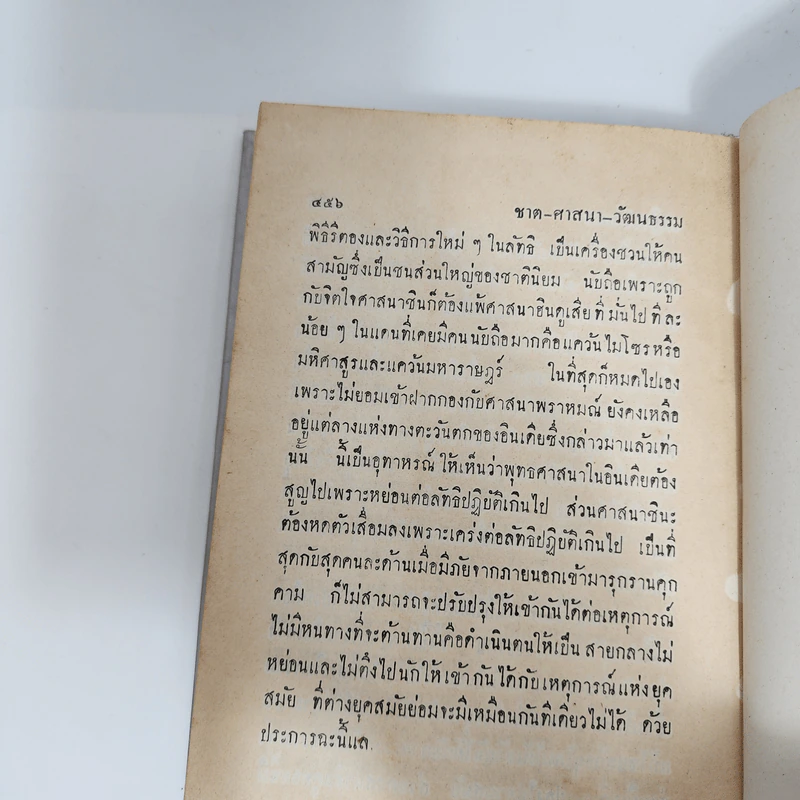 ๔๕๖
ชาต–ศาสนา–วัฒนธรรม
พิธีรีตองและวิธีการใหม่ ๆ ในลัทธิ เป็นเครื่องชวนให้คน
สามัญซึ่งเป็นชนส่วนใหญ่ของชาตินิยม นับถือเพราะถูก
กับจิตใจศาสนาชินก็ต้องแพ้ศาสนาฮินดูเสียที่มั่นไป ที่ละ
น้อย ๆ ในแดนที่เคยมีคนนับถือมากคือแคว้นไมโซรหรือ
มหิศาสูรและแคว้นมหาราษฎร์ ในที่สุดก็หมดไปเอง
เพราะไม่ยอมเข้าฝากกองกับศาสนาพราหมณ์ ยังคงเหลือ
อยู่แต่ลางแห่งทางตะวันตกของอินเดียซึ่งกล่าวมาแล้วเท่า
นั้น นี้เป็นอุทาหรณ์ ให้เห็นว่าพุทธศาสนาในอินเดียต้อง
สูญไปเพราะหย่อนต่อลัทธิปฏิบัติเกินไป ส่วนศาสนาชินะ
ต้องหดตัวเสื่อมลงเพราะเคร่งต่อลัทธิปฏิบัติเกินไป เป็นที่
สุดกับสุดคนละด้านเมื่อมีภัยจากภายนอกเข้ามารุกรานคุก
คาม ก็ไม่สามารถจะปรับปรุงให้เข้ากันได้ต่อเหตุการณ์
ไม่มีหนทางที่จะต้านทานคือดำเนินตนให้เป็น สายกลางไม่
หย่อนและไม่ตึงไปนักให้ เข้ากันได้กับเหตุการณ์แห่งยุค
สมัย ที่ต่างยุคสมัยย่อมจะมีเหมือนกันทีเดียวไม่ได้ ด้วย
ประการฉะนี้แล.